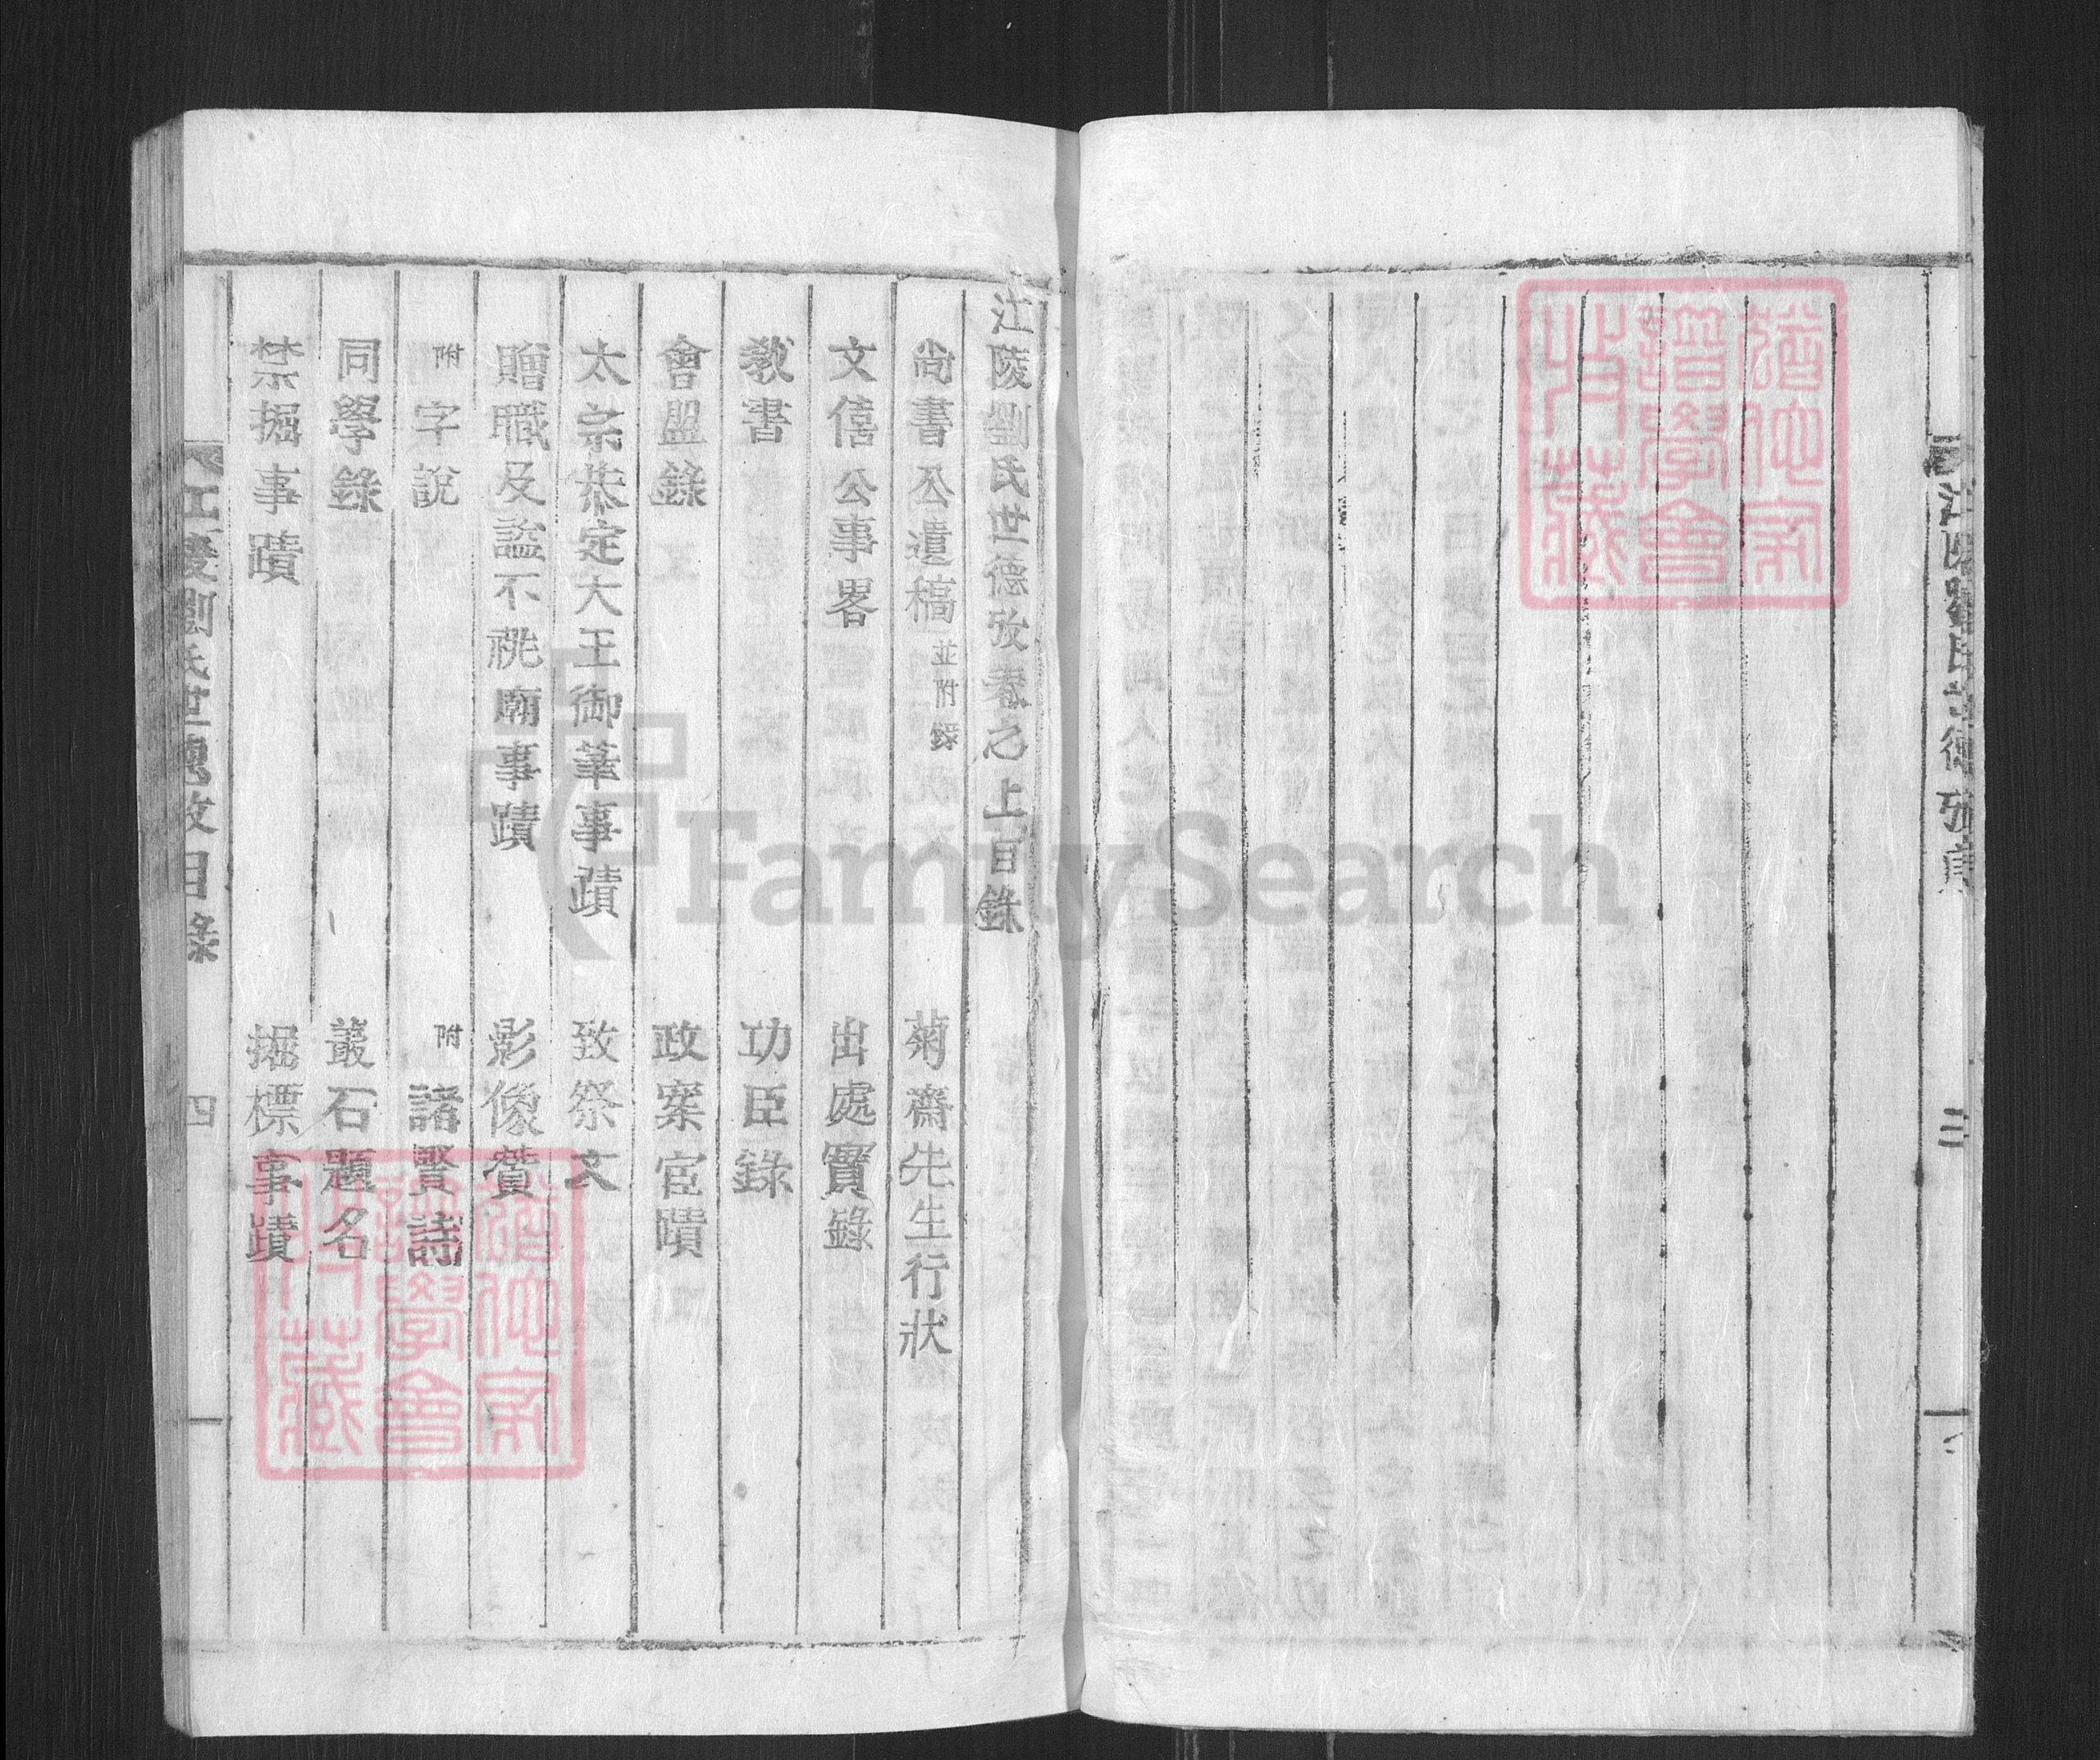 江陵劉氏世德攷序
三
江陵劉氏世德攷卷之上目錄
尚書公遺稿 並附錄
菊齋先生行狀
文僖公事畧
出處實錄
教書
功臣錄
會盟錄
政案宦蹟
太宗恭定大王御筆事蹟
致祭文
贈職及謚不祧廟事蹟
影像贊
附 字說
附 諸賢詩
同學錄
叢石題名
禁掘事蹟
掘標事蹟
江陵劉氏世德攷目錄
四
譜學會
所藏
譜學會
所藏
FamilySearch